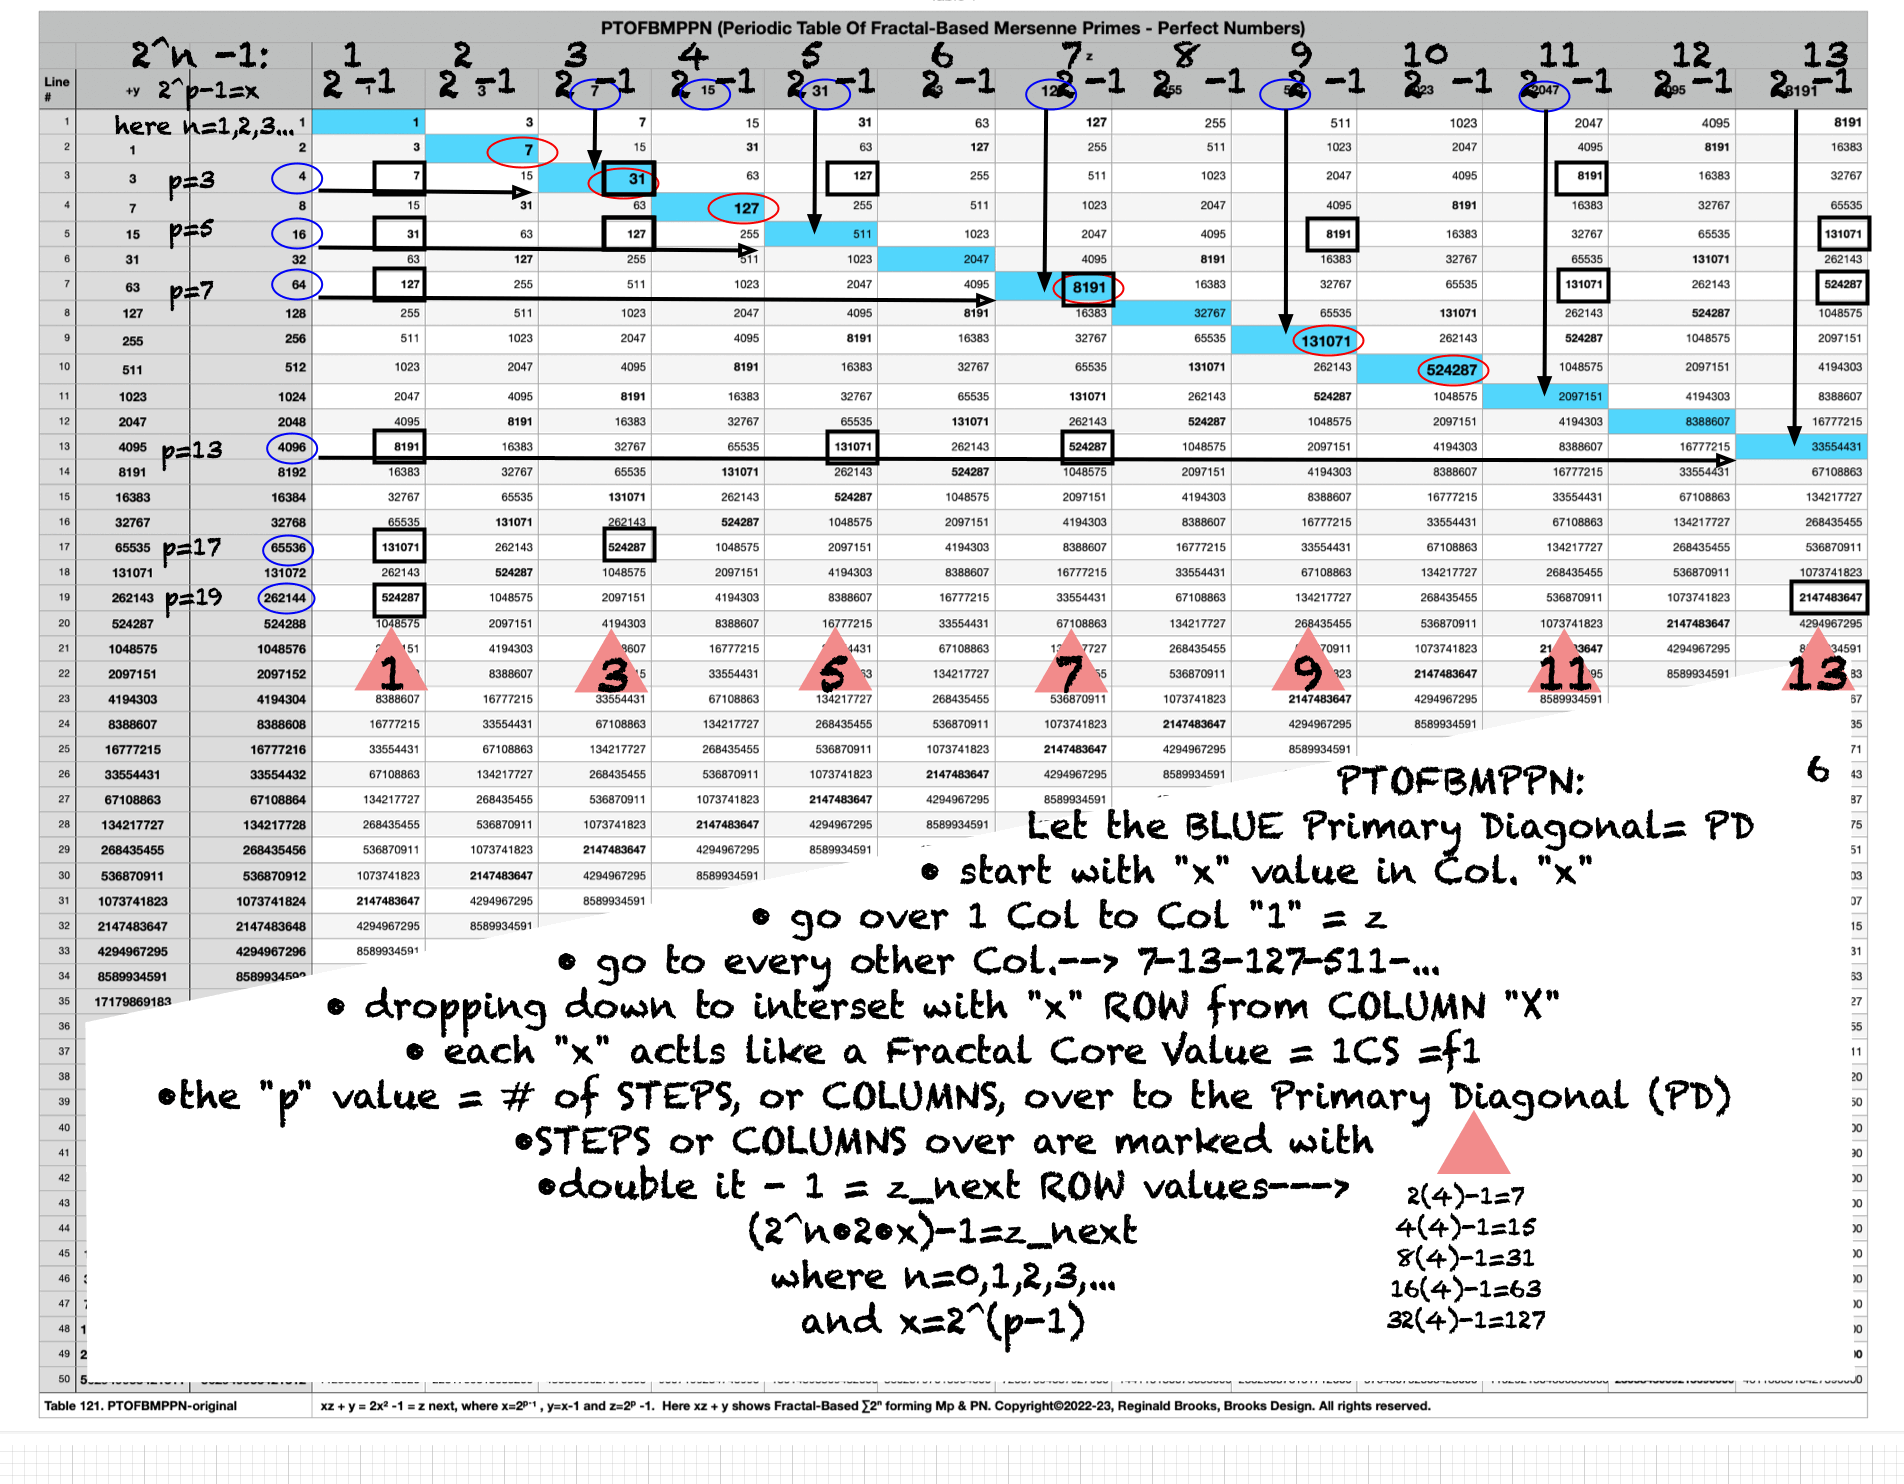 PTOFBMPPN (Periodic Table Of Fractal-Based Mersenne Primes - Perfect Numbers)
2^n -1: 1 2 3 4 5 6 7 z 8 9 10 11 12 13
Line # +y 2^p-1=x 2 -1 2 -1 2 -1 2 -1 2 -1 2 -1 2 -1 2 -1 2 -1 2 -1 2 -1 2 -1 2 -1
1 here n=1,2,3... 1 1 3 7 15 31 63 127 255 511 1023 2047 4095 8191
2 1 2 3 7 15 31 63 127 255 511 1023 2047 4095 8191 16383
3 3 p=3 4 7 15 31 63 127 255 511 1023 2047 4095 8191 16383 32767
4 7 8 15 31 63 127 255 511 1023 2047 4095 8191 16383 32767 65535
5 15 p=5 16 31 63 127 255 511 1023 2047 4095 8191 16383 32767 65535 131071
6 31 32 63 127 255 511 1023 2047 4095 8191 16383 32767 65535 131071 262143
7 63 p=7 64 127 255 511 1023 2047 4095 8191 16383 32767 65535 131071 262143 524287
8 127 128 255 511 1023 2047 4095 8191 16383 32767 65535 131071 262143 524287 1048575
9 255 256 511 1023 2047 4095 8191 16383 32767 65535 131071 262143 524287 1048575 2097151
10 511 512 1023 2047 4095 8191 16383 32767 65535 131071 262143 524287 1048575 2097151 4194303
11 1023 1024 2047 4095 8191 16383 32767 65535 131071 262143 524287 1048575 2097151 4194303 8388607
12 2047 2048 4095 8191 16383 32767 65535 131071 262143 524287 1048575 2097151 4194303 8388607 16777215
13 4095 p=13 4096 8191 16383 32767 65535 131071 262143 524287 1048575 2097151 4194303 8388607 16777215 33554431
14 8191 8192 16383 32767 65535 131071 262143 524287 1048575 2097151 4194303 8388607 16777215 33554431 67108863
15 16383 16384 32767 65535 131071 262143 524287 1048575 2097151 4194303 8388607 16777215 33554431 67108863 134217727
16 32767 32768 65535 131071 262143 524287 1048575 2097151 4194303 8388607 16777215 33554431 67108863 134217727 268435455
17 65535 p=17 65536 131071 262143 524287 1048575 2097151 4194303 8388607 16777215 33554431 67108863 134217727 268435455 536870911
18 131071 131072 262143 524287 1048575 2097151 4194303 8388607 16777215 33554431 67108863 134217727 268435455 536870911 1073741823
19 262143 p=19 262144 524287 1048575 2097151 4194303 8388607 16777215 33554431 67108863 134217727 268435455 536870911 1073741823 2147483647
20 524287 524288 1048575 2097151 4194303 8388607 16777215 33554431 67108863 134217727 268435455 536870911 1073741823 2147483647 4294967295
21 1048575 1048576 4194303 16777215 67108863 268435455 1073741823 4294967295
22 2097151 2097152 1 8388607 3 33554431 5 134217727 7 536870911 9 2147483647 11 8589934591 13
23 4194303 4194304 8388607 16777215 33554431 67108863 134217727 268435455 536870911 1073741823 2147483647 4294967295 8589934591
24 8388607 8388608 16777215 33554431 67108863 134217727 268435455 536870911 1073741823 2147483647 4294967295 8589934591
25 16777215 16777216 33554431 67108863 134217727 268435455 536870911 1073741823 2147483647 4294967295 8589934591
26 33554431 33554432 67108863 134217727 268435455 536870911 1073741823 2147483647 4294967295 8589934591
27 67108863 67108864 134217727 268435455 536870911 1073741823 2147483647 4294967295 8589934591
28 134217727 134217728 268435455 536870911 1073741823 2147483647 4294967295 8589934591
29 268435455 268435456 536870911 1073741823 2147483647 4294967295 8589934591
30 536870911 536870912 1073741823 2147483647 4294967295 8589934591
31 1073741823 1073741824 2147483647 4294967295 8589934591
32 2147483647 2147483648 4294967295 8589934591
33 4294967295 4294967296 8589934591
34 8589934591
35 17179869183
36
37
38
39
40
41
42
43
44
45
46
47
48
49
50
6
PTOFBMPPN:
Let the BLUE Primary Diagonal= PD
• start with "x" value in Col. "x"
• go over 1 Col to Col "1" = z
• go to every other Col.--> 7-13-127-511-...
• dropping down to interset with "x" ROW from COLUMN "X"
• each "x" actls like a Fractal Core Value = 1CS =f1
•the "p" value = # of STEPS, or COLUMNS, over to the Primary Diagonal (PD)
•STEPS or COLUMNS over are marked with
•double it - 1 = z_next ROW values--->
(2^n•2•x)-1=z_next
where n=0,1,2,3,...
and x=2^(p-1)
2(4)-1=7
4(4)-1=15
8(4)-1=31
16(4)-1=63
32(4)-1=127
Table 121. PTOFBMPPN-original
xz + y = 2x² -1 = z next, where x=2ᵖ⁻¹ , y=x-1 and z=2ᵖ -1. Here xz + y shows Fractal-Based ∑2ⁿ forming Mp & PN. Copyright©2022-23, Reginald Brooks, Brooks Design. All rights reserved.